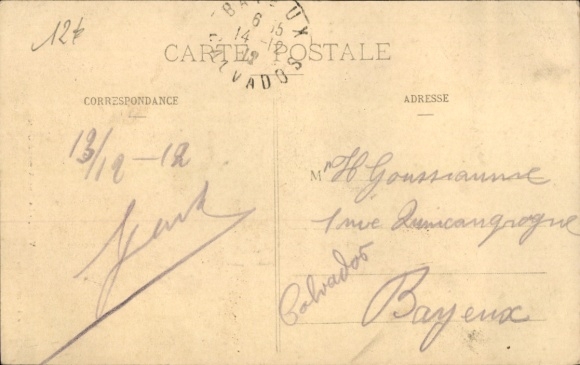 124
BAYEUX
6 15
14 -12
12
CALVADOS
CARTE POSTALE
CORRESPONDANCE
ADRESSE
13/12 - 12
Mr H Goussiaume
1 rue Quincangrogne
Calvados
Bayeux